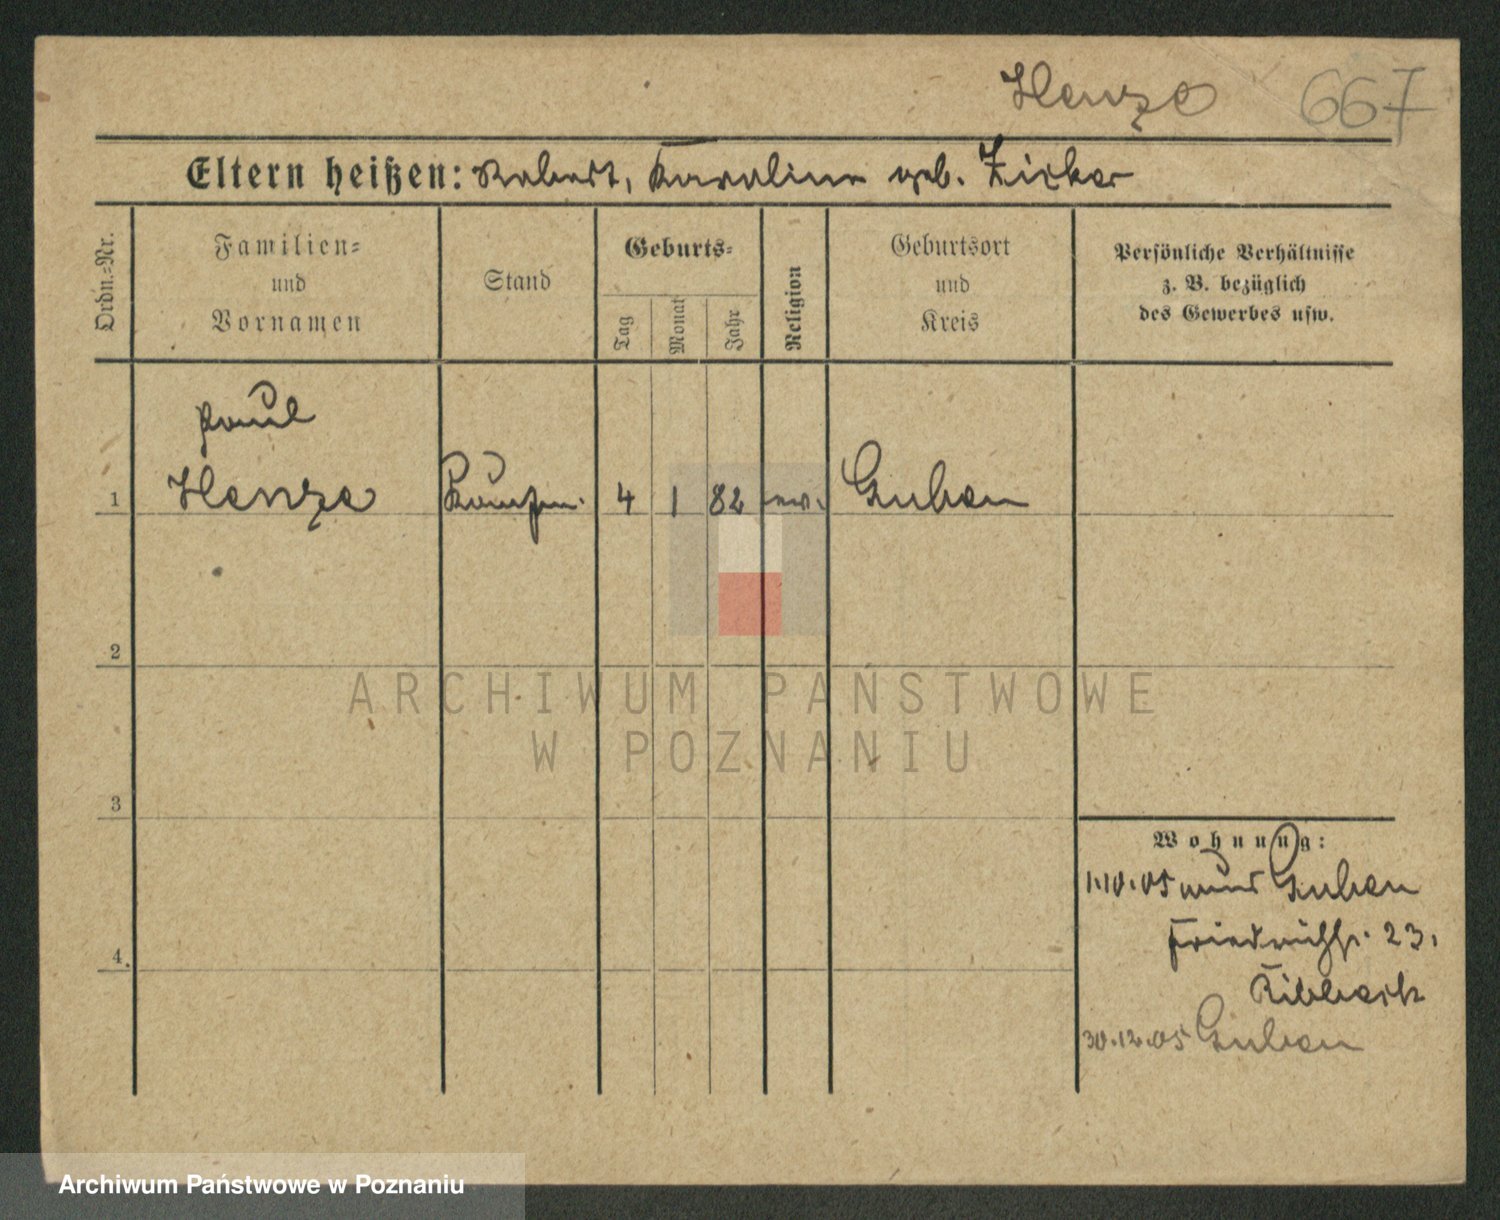 Henze 667
Eltern heißen: Robert, Karoline geb. Zirker
Ordn.=Nr.
Familien=
und
Vornamen
Stand
Geburts=
Tag
Monat
Jahr
Religion
Geburtsort
und
Kreis
Persönliche Verhältnisse
z. B. bezüglich
des Gewerbes usw.
Paul
1 Henze Kaufm. 4 1 82 ev. Guben
2
3
4.
Wohnung:
1.10.05 aus Guben
Friedrichstr. 23.
Ribbeck
30.12.05 Guben
ARCHIWUM PAŃSTWOWE
W POZNANIU
Archiwum Państwowe w Poznaniu